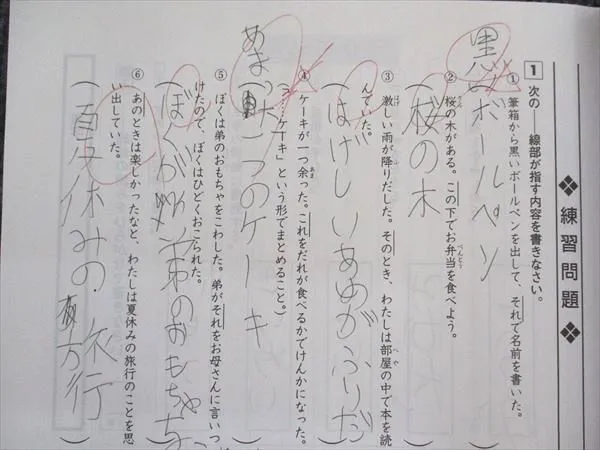 ❖ 練習問題 ❖
1 次の――線部が指す内容を書きなさい。
① 筆箱から黒いボールペンを出して、それで名前を書いた。
黒いボールペン
② 桜の木がある。この下でお弁当を食べよう。
(桜の木)
③ 激しい雨が降りだした。そのとき、わたしは部屋の中で本を読
んでいた。
(はげしいあめがふりだ
④ ケーキが一つ余った。これをだれが食べるかでけんかになった。
(「……ケーキ」という形でまとめること。)
あまった
一つのケーキ
⑤ ぼくは弟のおもちゃをこわした。弟がそれをお母さんに言いつ
けたので、ぼくはひどくおこられた。
(ぼくが弟のおもちゃを
⑥ あのときは楽しかったなと、わたしは夏休みの旅行のことを思
い出していた。
(夏休みの旅行)